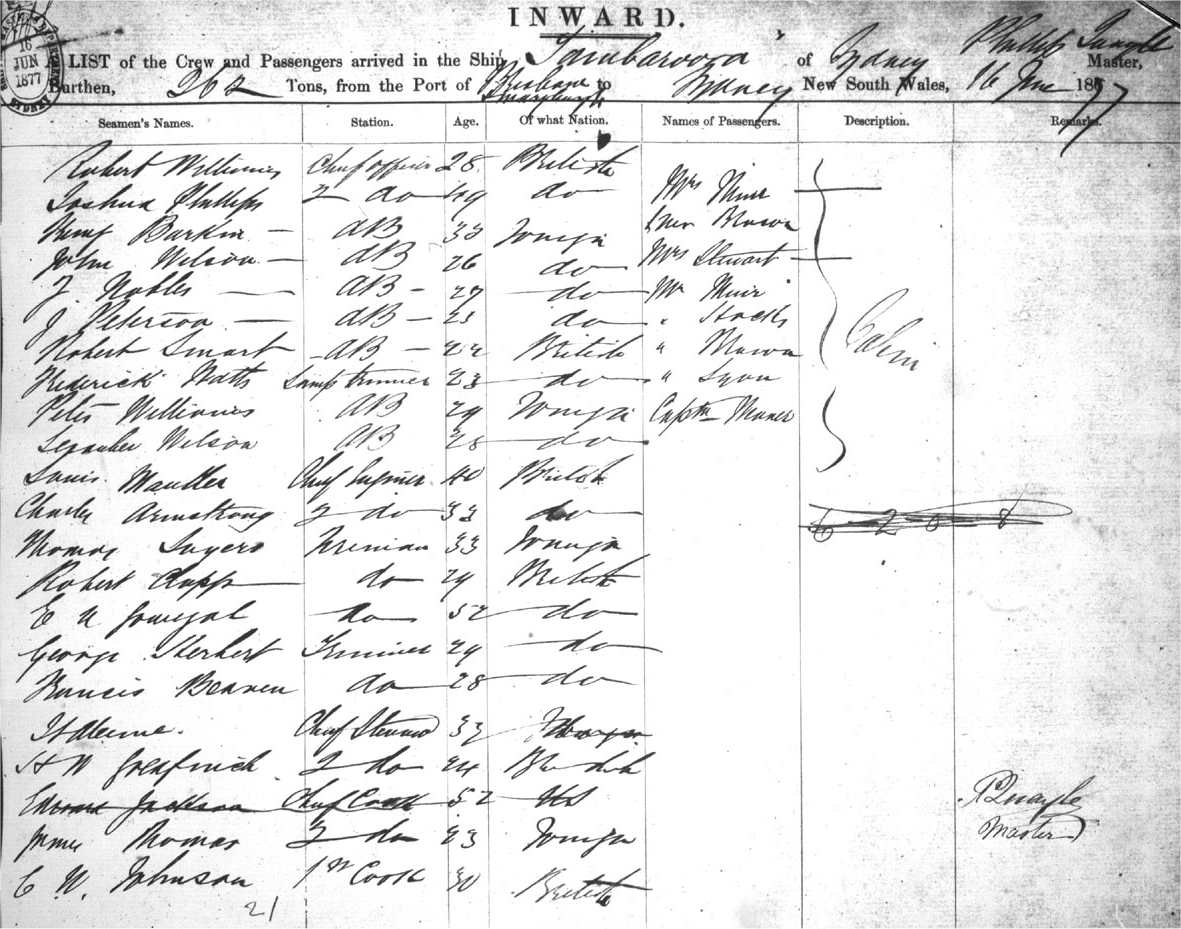 INWARD.
16
JUN
1877
SYDNEY
LIST of the Crew and Passengers arrived in the Ship Tambaroora of Sydney Phillip Quayle Master,
Burthen, 262 Tons, from the Port of Brisbane to Sydney New South Wales, 16 June 1877
Maryboro
Seamen's Names. Station. Age. Of what Nation. Names of Passengers. Description. Remarks.
Robert Williams Chief officer 28 British
Joshua Phillips 2 do 49 do Mrs Muir
Barkin AB 33 Foreign
John Wilson AB 26 do Mrs Stewart
J. Nobles AB 27 do Mr Muir
J. Peterson AB do " Stocks
Robert Smart AB 22 British "
Cabin
Frederick Watts Lamp trimmer 23 do " Lyon
Peter Williams AB 29 Foreign Captn
Wilson AB 28 do
Louis Chief Engineer 40 British
Charles Armstrong 2 do 33 do
Thomas Sayers Fireman 33 Foreign
Robert Clapp do 29 British
E do 52 do
George Herbert Trimmer 29 do
Francis Beaven do 28 do
Chief Steward 37 Foreign
H W 2 do 24 British
Edward Jackson Chief Cook 52 US
P Quayle
Master
James Thomas 2 do 23 Foreign
C W. Johnson 1st Cook 30 British
21